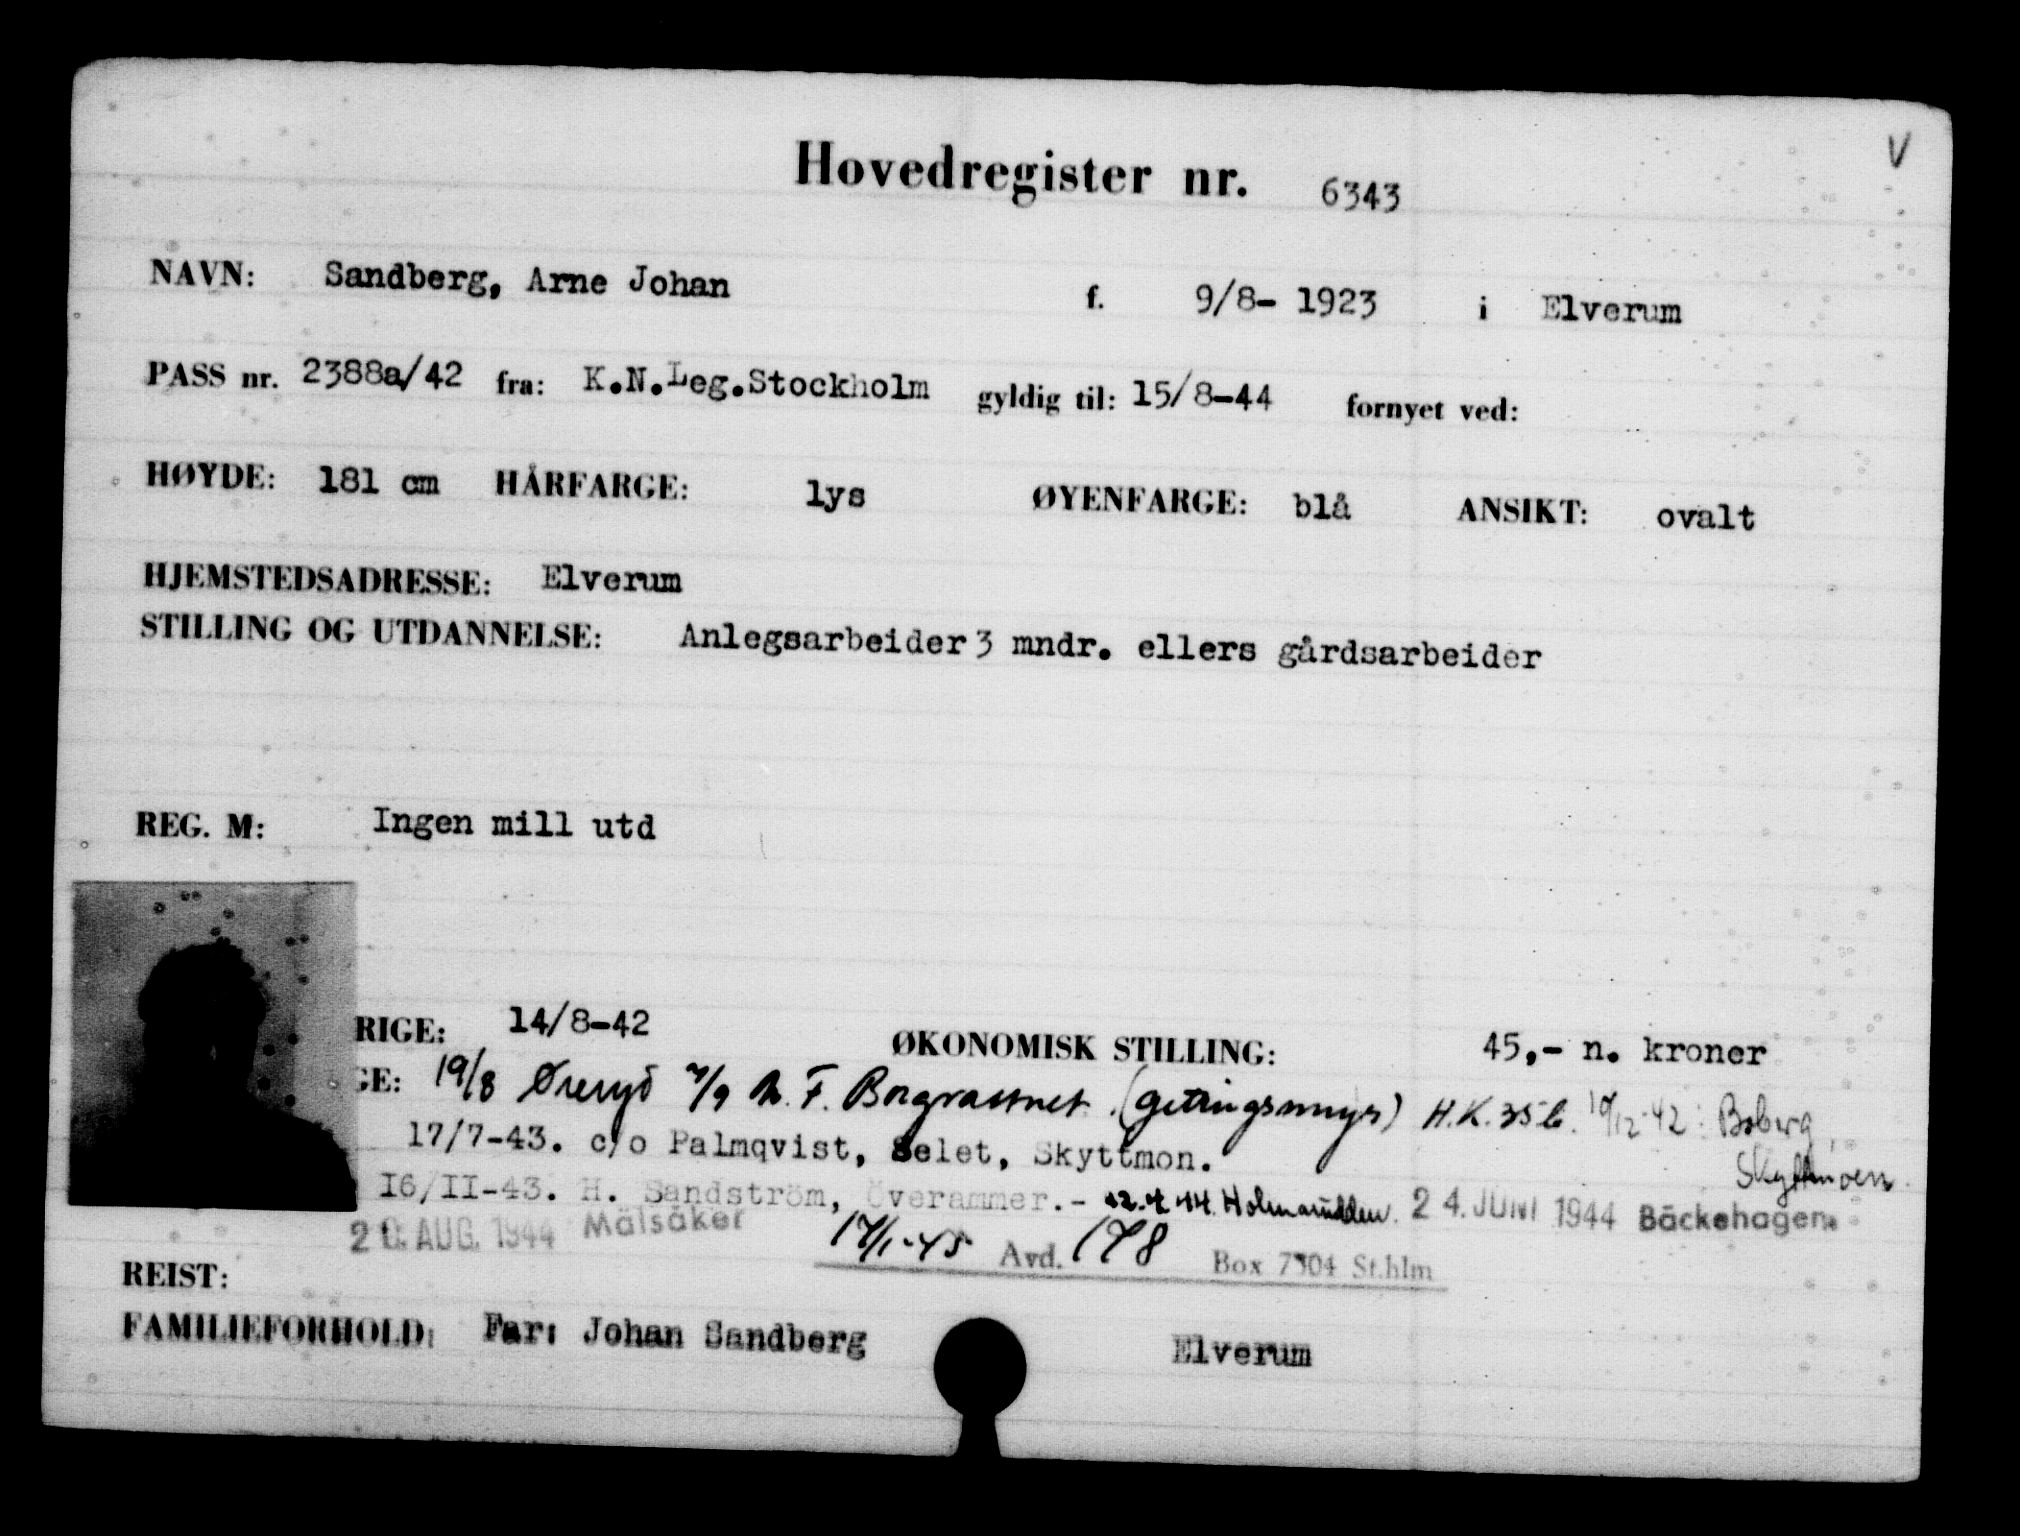 V
Hovedregister nr. 6343
NAVN: Sandberg, Arne Johan f. 9/8- 1923 i Elverum
PASS nr. 2388a/42 fra: K.N.Leg.Stockholm gyldig til: 15/8-44 fornyet ved:
HØYDE: 181 cm HÅRFARGE: lys ØYENFARGE: blå ANSIKT: ovalt
HJEMSTEDSADRESSE: Elverum
STILLING OG UTDANNELSE: Anlegsarbeider 3 mndr. ellers gårdsarbeider
REG. M: Ingen mill utd
RIGE: 14/8-42 ØKONOMISK STILLING: 45,- n. kroner
GE: 19/8 Øreryd F. Borgvattnet H.K. 35 b. 12-42: Boberg,
17/7-43. c/o Palmqvist, Selet, Skyttmon. Skyttmoen.
16/II-43. H. Sandström, Överammer.- 44. 24. JUNI 1944 Bäckehagen.
AUG. 1944 Mälsåker 17/1-45 Avd. 178 Box 7304 St.hlm
REIST:
FAMILIEFORHOLD: Far: Johan Sandberg Elverum